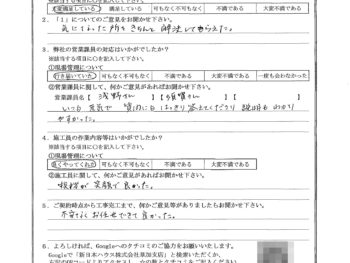 大変満足している 満足している 可もなく不可もなく 不満である 大変不満である
2．「１」についてのご意見をお聞かせ下さい。
気になった内を きちんと 解決してもらえた。
3．弊社の営業課員の対応はいかがでしたか？
※該当する項目に○を記入して下さい。
①現場管理について
行き届いていた 可もなく不可もなく 不満である 大変不満である 一度も会わなかった
②営業課員に関して、何かご意見があればお聞かせ下さい。
営業課員名【 浅野さん 】【 須賀さん 】【 】
いつも 元気で 質問にも はっきり 答えてくださり 説明も わかり
やすかった。
4．施工員の作業内容等はいかがでしたか？
※該当する項目に○を記入して下さい。
①現場管理について
良くやってくれた 可もなく不可もなく 不満である 大変不満である
②施工員に関して、何かご意見があればお聞かせ下さい。
挨拶が 笑顔で 良かった。
5．ご契約時点から工事完工まで、何かご意見等がありましたらお聞かせ下さい。
不安なく お任せできて 良かった。
6．よろしければ、Googleへのクチコミのご協力をお願いいたします。
Googleで「新日本ハウス株式会社草加支店」と検索いただくか、